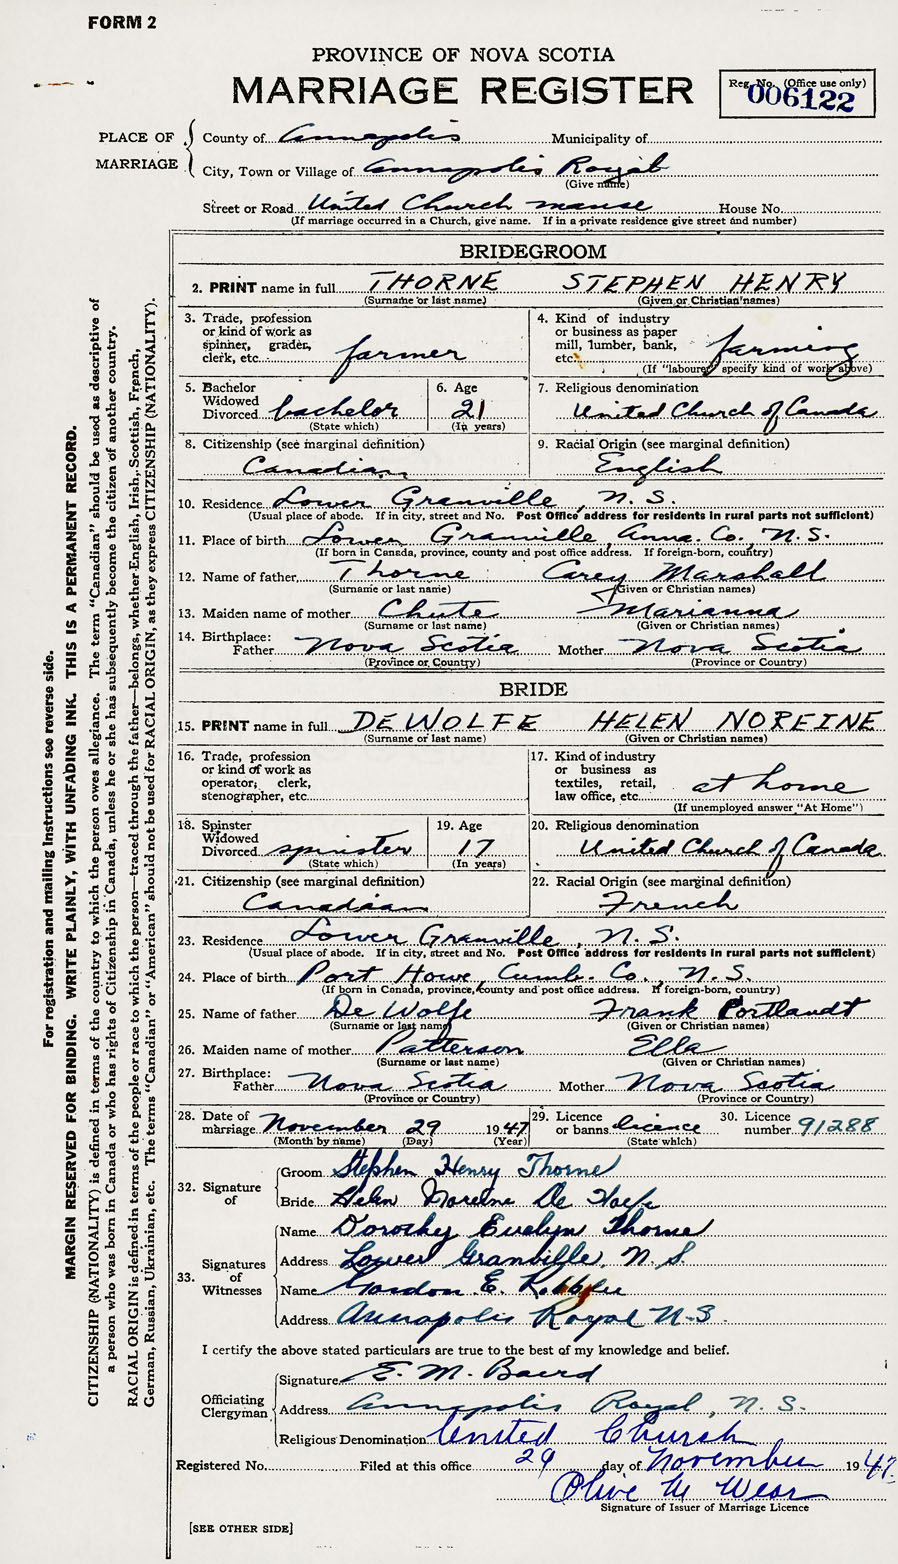 FORM 2
PROVINCE OF NOVA SCOTIA
MARRIAGE REGISTER
Reg. No. (Office use only)
006122
PLACE OF MARRIAGE
County of Annapolis Municipality of
City, Town or Village of Annapolis Royal
(Give name)
Street or Road United Church manse House No.
(If marriage occurred in a Church, give name. If in a private residence give street and number)
BRIDEGROOM
2. PRINT name in full THORNE STEPHEN HENRY
(Surname or last name) (Given or Christian names)
3. Trade, profession or kind of work as spinner, grader, clerk, etc. farmer
4. Kind of industry or business as paper mill, lumber, bank, etc. farming
(If "labourer" specify kind of work above)
5. Bachelor Widowed Divorced bachelor
(State which)
6. Age 21
(In years)
7. Religious denomination
United Church of Canada
8. Citizenship (see marginal definition)
Canadian
9. Racial Origin (see marginal definition)
English
10. Residence Lower Granville, N.S.
(Usual place of abode. If in city, street and No. Post Office address for residents in rural parts not sufficient)
11. Place of birth Lower Granville, Anna. Co., N.S.
(If born in Canada, province, county and post office address. If foreign-born, country)
12. Name of father Thorne Carey Marshall
(Surname or last name) (Given or Christian names)
13. Maiden name of mother Chute Marianna
(Surname or last name) (Given or Christian names)
14. Birthplace: Father Nova Scotia Mother Nova Scotia
(Province or Country) (Province or Country)
BRIDE
15. PRINT name in full DEWOLFE HELEN NOREINE
(Surname or last name) (Given or Christian names)
16. Trade, profession or kind of work as operator, clerk, stenographer, etc.
17. Kind of industry or business as textiles, retail, law office, etc. at home
(If unemployed answer "At Home")
18. Spinster Widowed Divorced spinster
(State which)
19. Age 17
(In years)
20. Religious denomination
United Church of Canada
21. Citizenship (see marginal definition)
Canadian
22. Racial Origin (see marginal definition)
French
23. Residence Lower Granville, N.S.
(Usual place of abode. If in city, street and No. Post Office address for residents in rural parts not sufficient)
24. Place of birth Port Howe, Cumb. Co., N.S.
(If born in Canada, province, county and post office address. If foreign-born, country)
25. Name of father De Wolfe Frank Portlandt
(Surname or last name) (Given or Christian names)
26. Maiden name of mother Patterson Ella
(Surname or last name) (Given or Christian names)
27. Birthplace: Father Nova Scotia Mother Nova Scotia
(Province or Country) (Province or Country)
28. Date of marriage November 29 1947
(Month by name) (Day) (Year)
29. Licence or banns licence
(State which)
30. Licence number 91288
32. Signature of
Groom Stephen Henry Thorne
Bride Helen Noreine De Wolfe
33. Signatures of Witnesses
Name Dorothy Evelyn Thorne
Address Lower Granville, N.S.
Name Gordon E.
Address Annapolis Royal N.S.
I certify the above stated particulars are true to the best of my knowledge and belief.
Officiating Clergyman
Signature E. M. Baird
Address Annapolis Royal, N.S.
Religious Denomination United Church
Registered No. Filed at this office 29 day of November 1947.
Olive M Wear
Signature of Issuer of Marriage Licence
[SEE OTHER SIDE]
For registration and mailing instructions see reverse side.
MARGIN RESERVED FOR BINDING. WRITE PLAINLY, WITH UNFADING INK. THIS IS A PERMANENT RECORD.
CITIZENSHIP (NATIONALITY) is defined in terms of the country to which the person owes allegiance. The term "Canadian" should be used as descriptive of
a person who was born in Canada or who has rights of Citizenship in Canada, unless he or she has subsequently become the citizen of another country.
RACIAL ORIGIN is defined in terms of the people or race to which the person—traced through the father—belongs, whether English, Irish, Scottish, French,
German, Russian, Ukrainian, etc. The terms "Canadian" or "American" should not be used for RACIAL ORIGIN, as they express CITIZENSHIP (NATIONALITY).